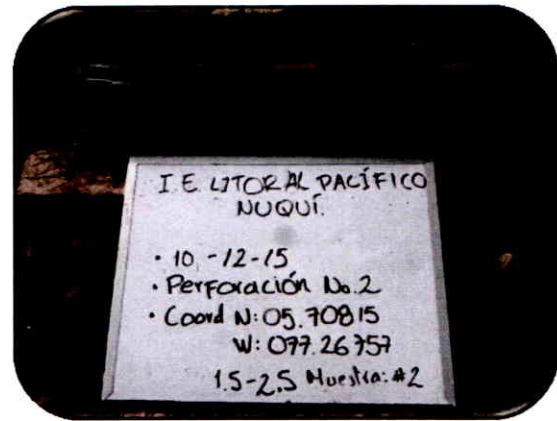 I.E LITORAL PACÍFICO
NUQUÍ.
• 10 -12-15
• Perforación No.2
• Coord N: 05.70815
W: 077.26757
1.5-2.5 Muestra: #2